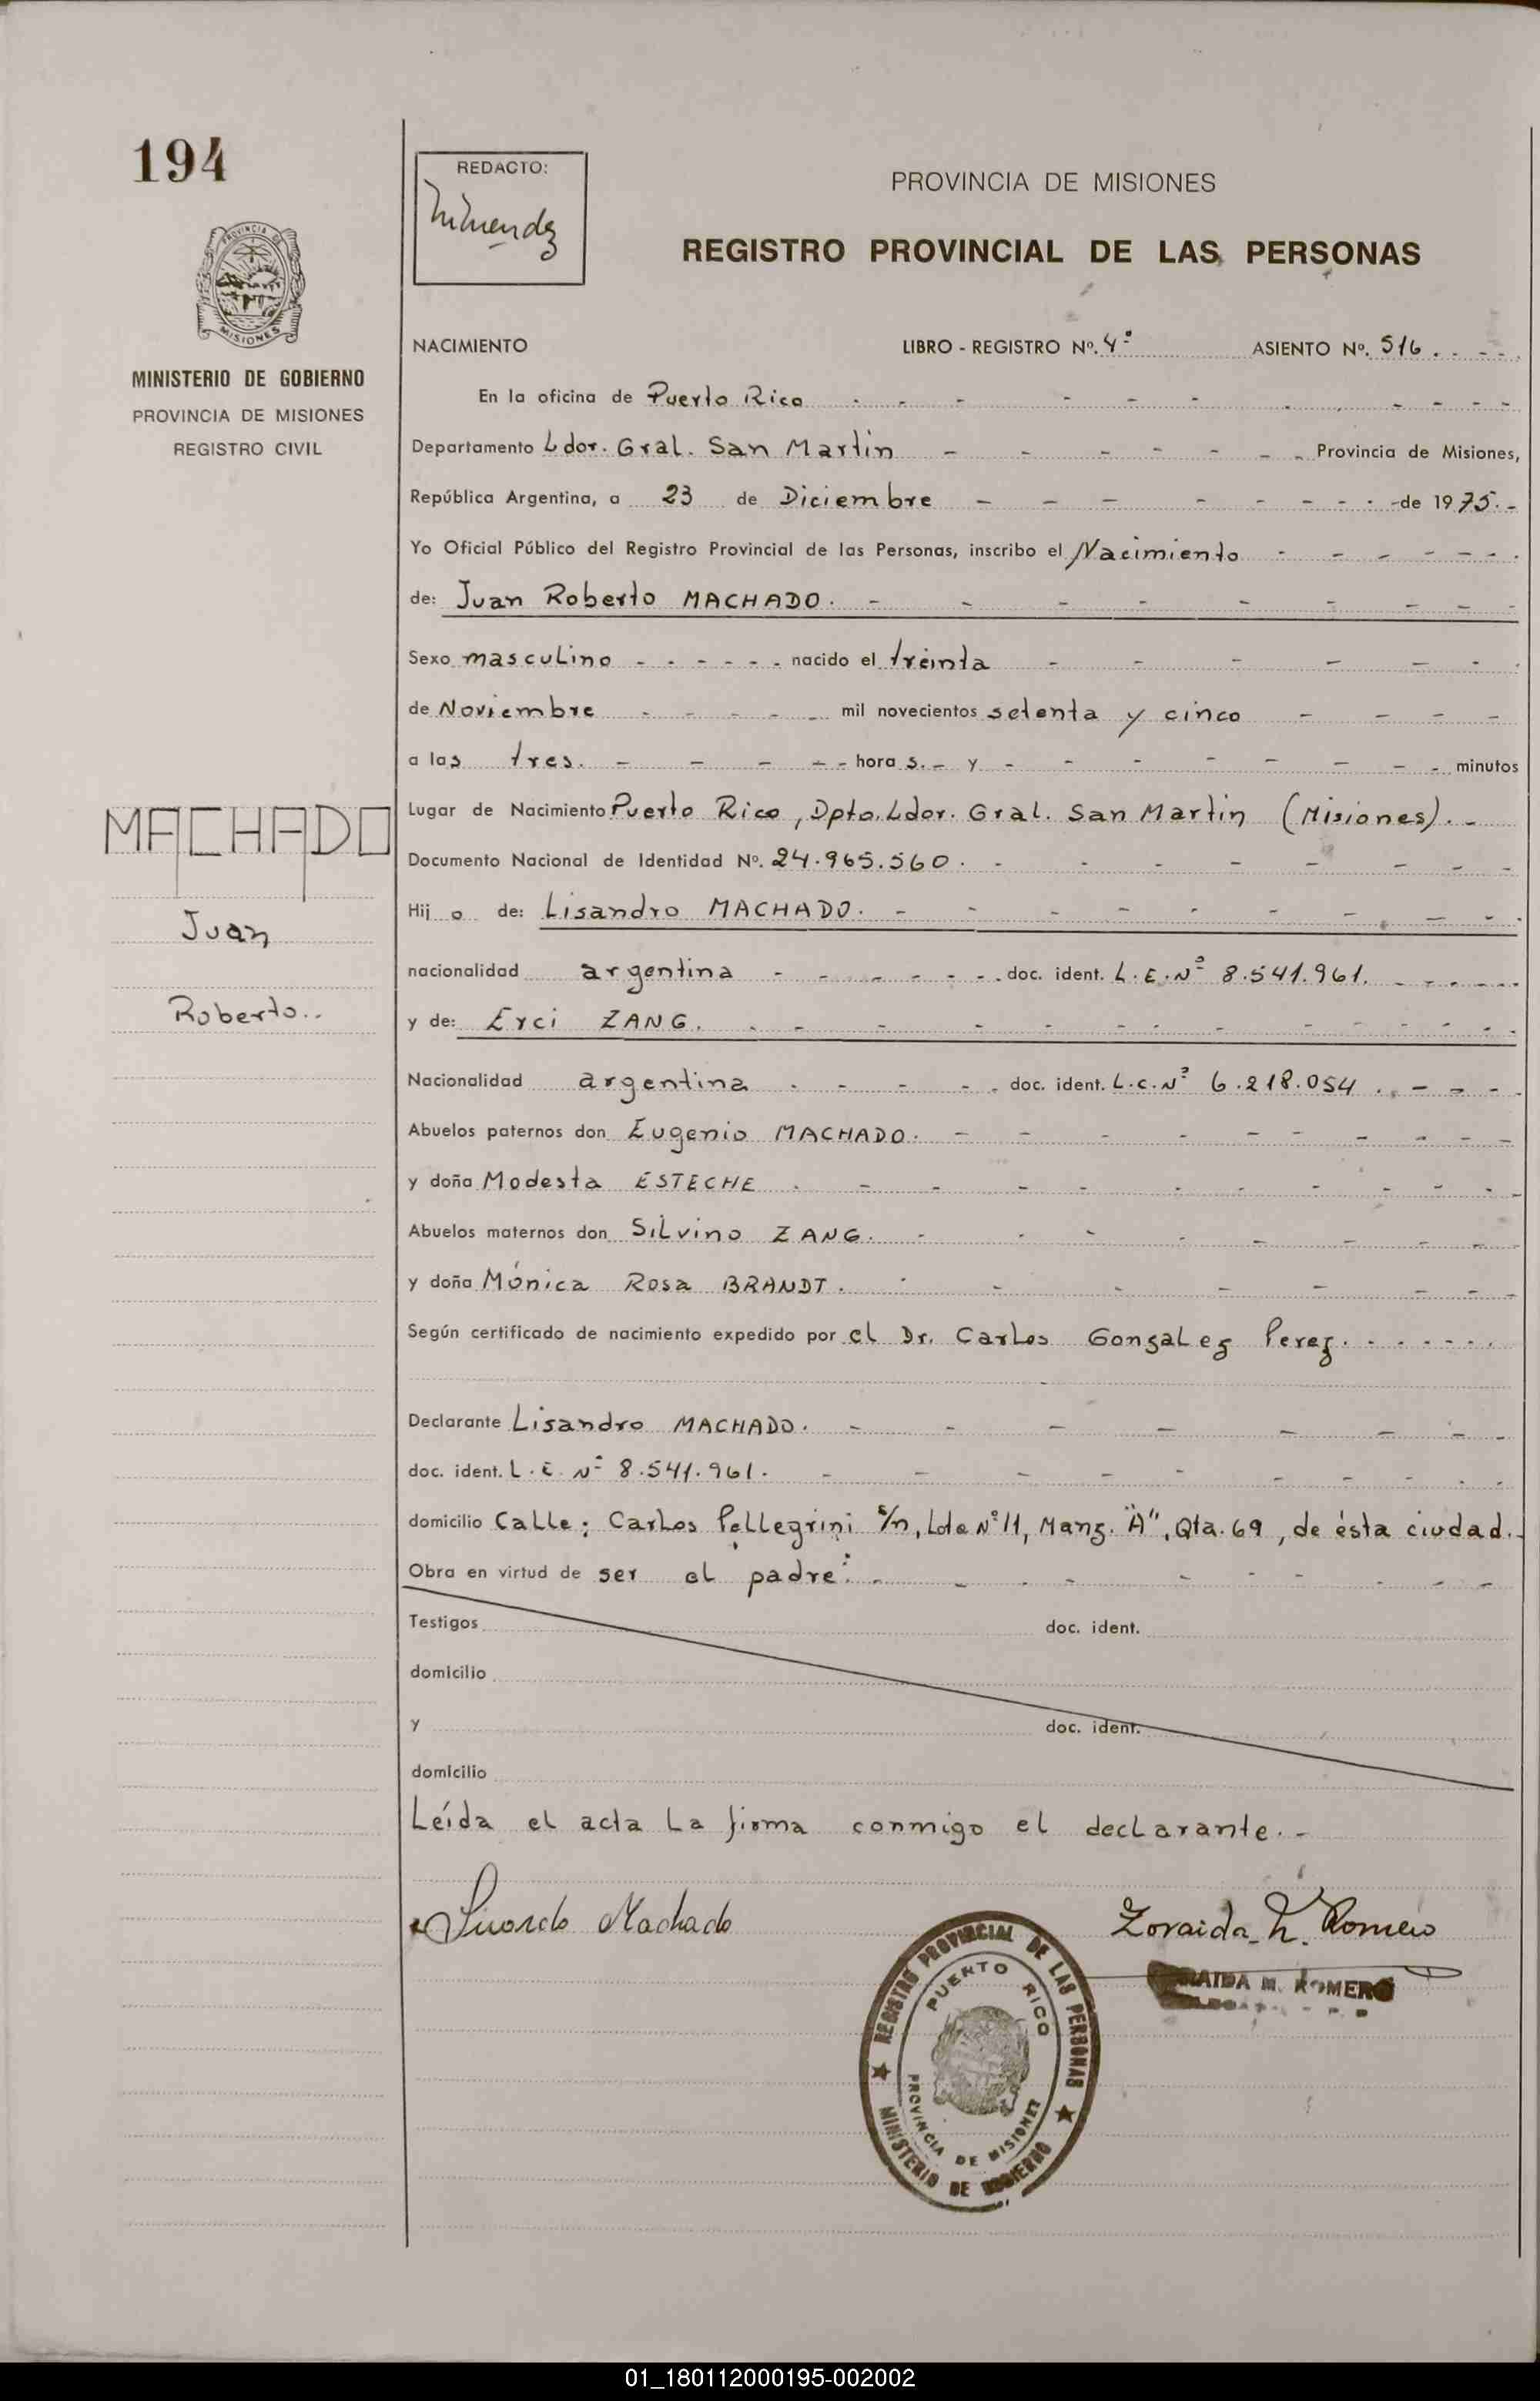 194
REDACTO:
PROVINCIA DE MISIONES
REGISTRO PROVINCIAL DE LAS PERSONAS
PROVINCIA DE
MISIONES
MINISTERIO DE GOBIERNO
PROVINCIA DE MISIONES
REGISTRO CIVIL
NACIMIENTO LIBRO - REGISTRO Nº. 4º ASIENTO Nº. 516
En la oficina de Puerto Rico
Departamento Ldor. Gral. San Martin Provincia de Misiones,
República Argentina, a 23 de Diciembre de 1975.-
Yo Oficial Público del Registro Provincial de las Personas, inscribo el Nacimiento
de: Juan Roberto MACHADO.
Sexo masculino nacido el treinta
de Noviembre mil novecientos setenta y cinco
a las tres. hora s. y minutos
MACHADO
Juan
Roberto..
Lugar de Nacimiento Puerto Rico, Dpto. Ldor. Gral. San Martin (Misiones).-
Documento Nacional de Identidad Nº. 24.965.560.
Hij o de: Lisandro MACHADO.
nacionalidad argentina doc. ident. L.E.Nº 8.541.961.
y de: Erci ZANG.
Nacionalidad argentina doc. ident. L.C.Nº 6.218.054
Abuelos paternos don Eugenio MACHADO.
y doña Modesta ESTECHE
Abuelos maternos don Silvino ZANG.
y doña Mónica Rosa BRANDT.
Según certificado de nacimiento expedido por el Dr. Carlos Gonzalez Perez.
Declarante Lisandro MACHADO.
doc. ident. L.E. Nº 8.541.961.
domicilio Calle: Carlos Pellegrini s/n, Lote Nº 11, Manz. "A", Qta. 69, de ésta ciudad.
Obra en virtud de ser el padre:
Testigos doc. ident.
domicilio
y doc. ident.
domicilio
Leída el acta la firma conmigo el declarante.-
Lisandro Machado
Zoraida M. Romero
REGISTRO PROVINCIAL DE LAS PERSONAS
PUERTO RICO
PROVINCIA DE MISIONES
MINISTERIO DE GOBIERNO
M. ROMERO
01_180112000195-002002